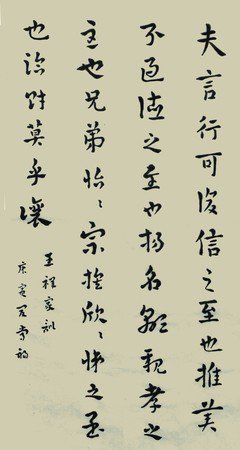 夫言行可復信之至也推美
過德之至也揚名顯親孝之
至也兄弟怡〻宗族欣〻悌之至
也臨財莫乎讓
王祥家訓
庚寅